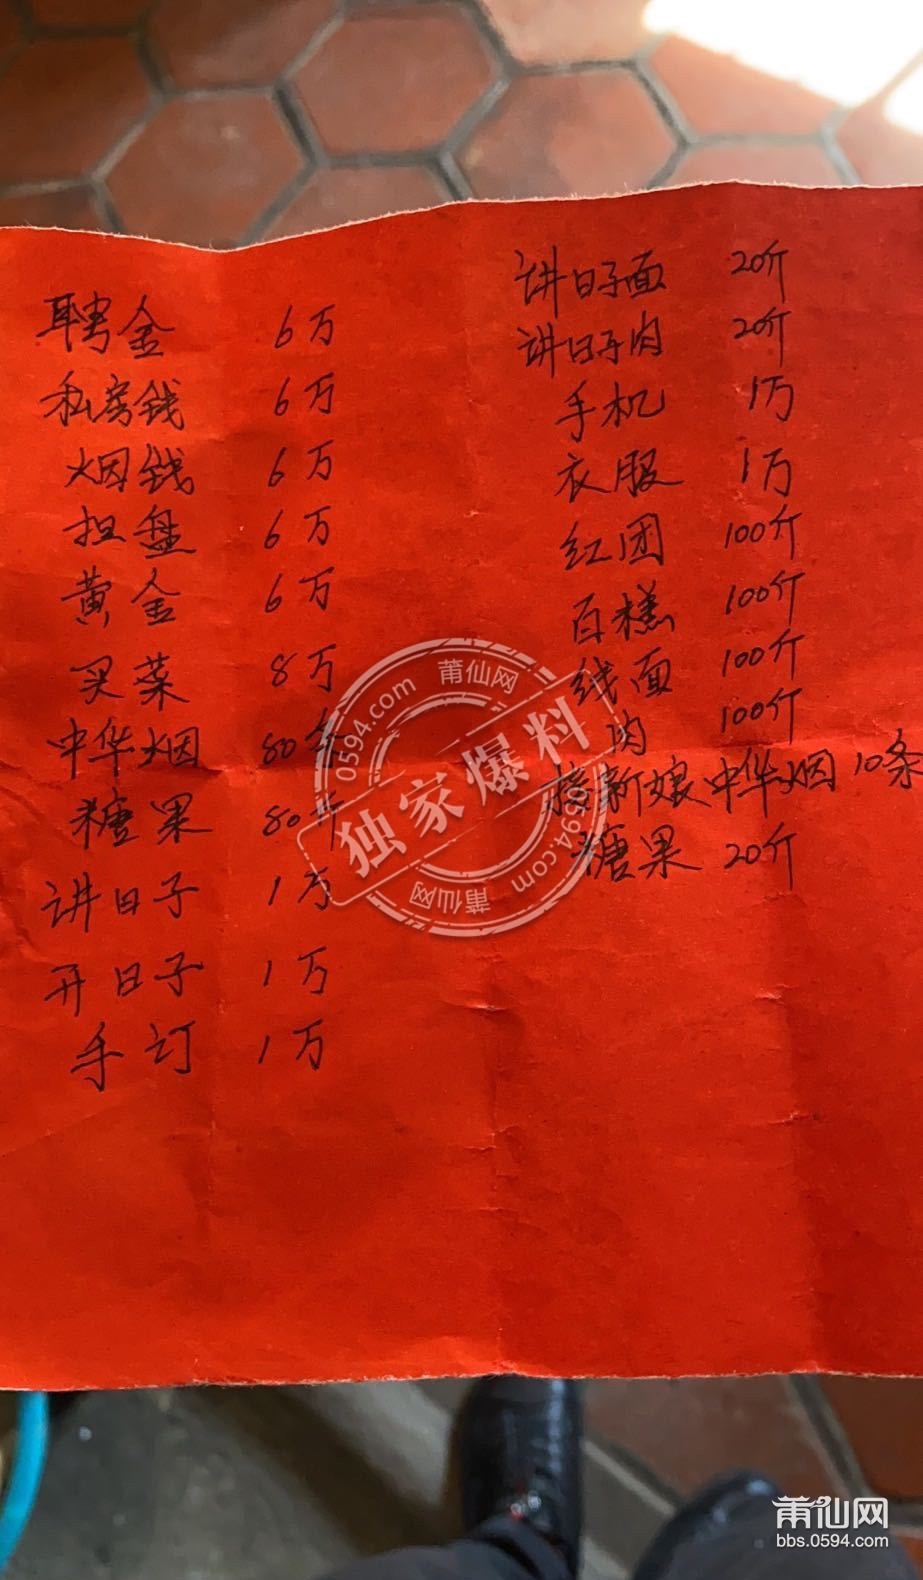 聘金 6万
私房钱 6万
烟钱 6万
担盘 6万
黄金 6万
买菜 8万
中华烟 80条
糖果 80斤
讲日子 1万
开日子 1万
手订 1万
讲日子面 20斤
讲日子肉 20斤
手机 1万
衣服 1万
红团 100斤
百糕 100斤
线面 100斤
肉 100斤
接新娘中华烟 10条
糖果 20斤
莆仙网
0594.com
独家爆料
0594.com
莆仙网
莆仙网
bbs.0594.com